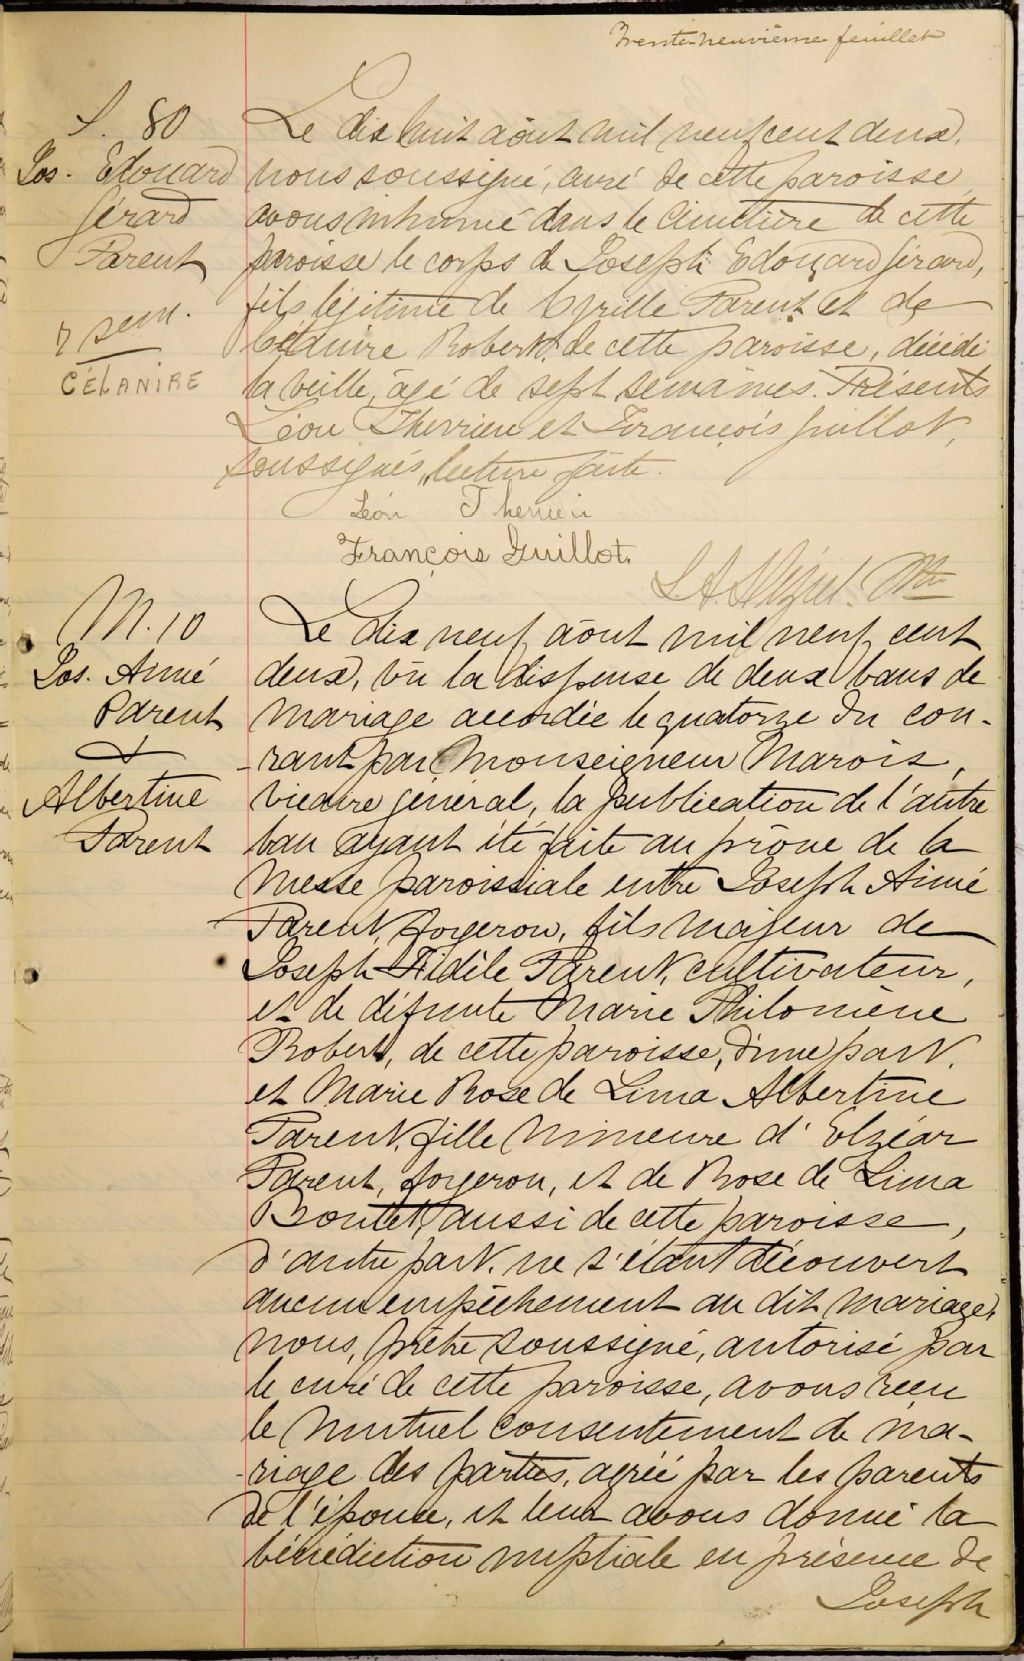 Trente-neuvième feuillet
S. 80
Jos. Edouard
Gérard
Parent
7 sem.
CÉLANIRE
Le dix huit août mil neuf cent deux,
nous soussigné, curé de cette paroisse
avons inhumé dans le cimetière de cette
paroisse le corps de Joseph Edouard Gérard,
fils légitime de Cyrille Parent et de
Célanire Robert, de cette paroisse, décédé
la veille, âgé de sept semaines. Présents
Léon Therrien et François Guillot,
soussignés, lecture faite.
Léon Therrien
François Guillot.
Ptre
M. 10
Jos. Aimé
Parent
&
Albertine
Parent
Le dix neuf août mil neuf cent
deux, vu la dispense de deux bans de
mariage accordée le quatorze du cou-
rant par Monseigneur Marois,
vicaire général, la publication de l'autre
ban ayant été faite au prône de la
messe paroissiale entre Joseph Aimé
Parent, forgeron, fils majeur de
Joseph Fidèle Parent, cultivateur,
et de défunte Marie Philomène
Robert, de cette paroisse, d'une part,
et Marie Rose de Lima Albertine
Parent, fille mineure d'Elzéar
Parent, forgeron, et de Rose de Lima
Boutet, aussi de cette paroisse,
d'autre part, ne s'étant découvert
aucun empêchement au dit mariage,
nous, prêtre soussigné, autorisé par
le curé de cette paroisse, avons reçu
le mutuel consentement de ma-
riage des parties, agréé par les parents
de l'épouse, et leur avons donné la
bénédiction nuptiale en présence de
Joseph